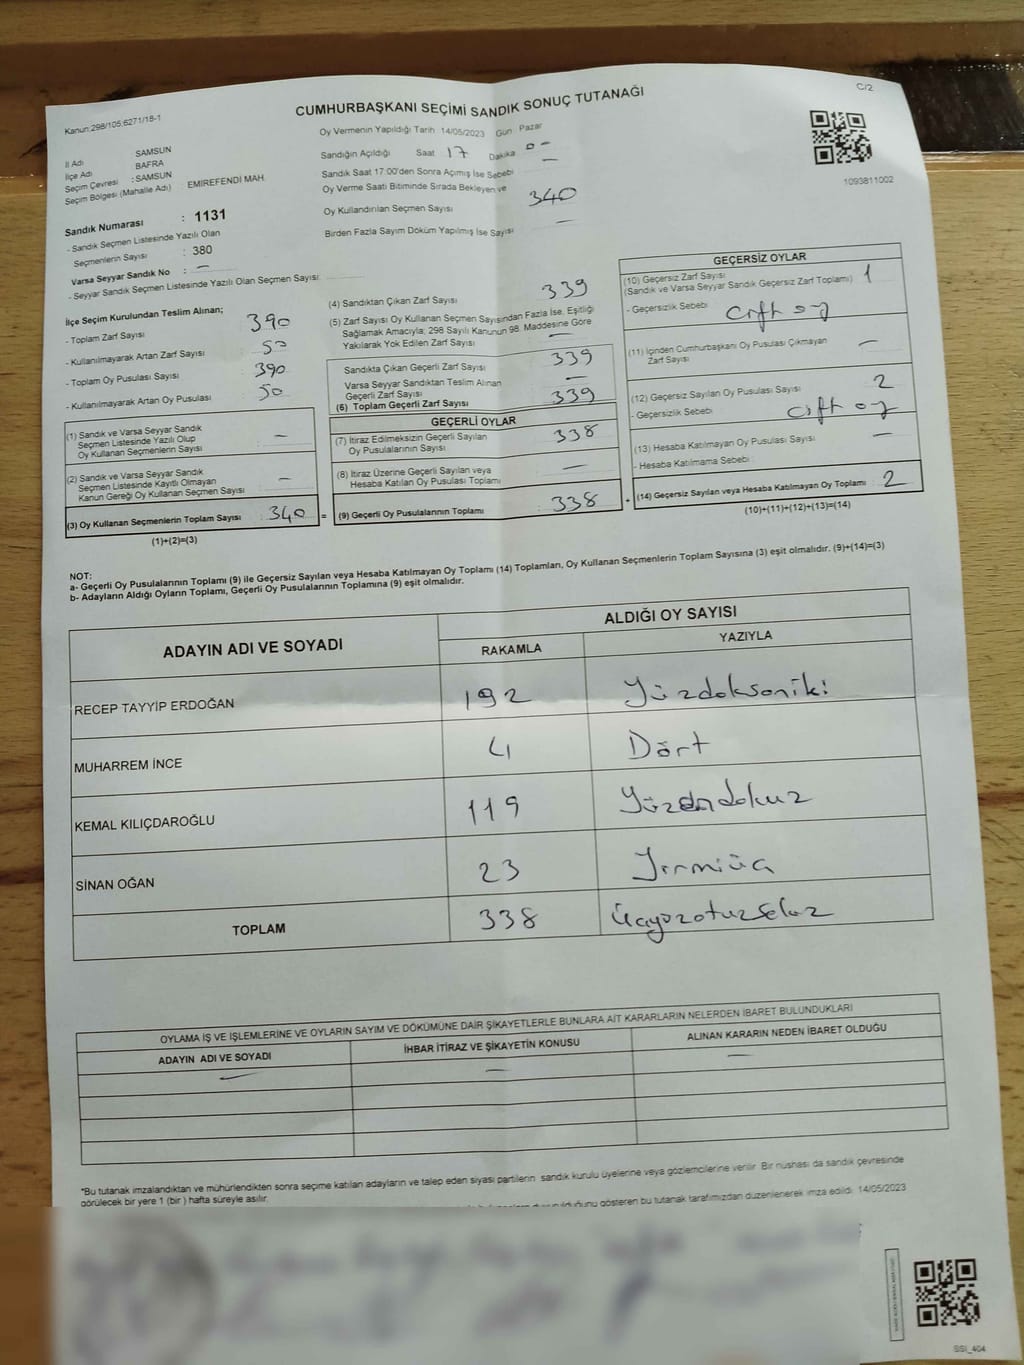 C/2
CUMHURBAŞKANI SEÇİMİ SANDIK SONUÇ TUTANAĞI
Kanun:298/105,6271/18-1
Oy Vermenin Yapıldığı Tarih 14/05/2023 Gün Pazar
İl Adı SAMSUN
İlçe Adı BAFRA
Seçim Çevresi : SAMSUN
Seçim Bölgesi (Mahalle Adı) EMİREFENDİ MAH.
Sandığın Açıldığı Saat 17 Dakika 0 -
Sandık Saat 17:00'den Sonra Açımış İse Sebebi —
Oy Verme Saati Bitiminde Sırada Bekleyen ve
Oy Kullandırılan Seçmen Sayısı 340
Birden Fazla Sayım Döküm Yapılmış İse Sayısı —
1093811002
Sandık Numarası : 1131
- Sandık Seçmen Listesinde Yazılı Olan
Seçmenlerin Sayısı : 380
Varsa Seyyar Sandık No : —
- Seyyar Sandık Seçmen Listesinde Yazılı Olan Seçmen Sayısı:
İlçe Seçim Kurulundan Teslim Alınan;
- Toplam Zarf Sayısı 390
- Kullanılmayarak Artan Zarf Sayısı 50
- Toplam Oy Pusulası Sayısı 390
- Kullanılmayarak Artan Oy Pusulası 50
(1) Sandık ve Varsa Seyyar Sandık
Seçmen Listesinde Yazılı Olup
Oy Kullanan Seçmenlerin Sayısı —
(2) Sandık ve Varsa Seyyar Sandık
Seçmen Listesinde Kayıtlı Olmayan
Kanun Gereği Oy Kullanan Seçmen Sayısı —
(3) Oy Kullanan Seçmenlerin Toplam Sayısı : 340 =
(1)+(2)=(3)
(4) Sandıktan Çıkan Zarf Sayısı 339
(5) Zarf Sayısı Oy Kullanan Seçmen Sayısından Fazla İse, Eşitliği
Sağlamak Amacıyla; 298 Sayılı Kanunun 98. Maddesine Göre
Yakılarak Yok Edilen Zarf Sayısı —
Sandıkta Çıkan Geçerli Zarf Sayısı 339
Varsa Seyyar Sandıktan Teslim Alınan
Geçerli Zarf Sayısı —
(6) Toplam Geçerli Zarf Sayısı 339
GEÇERLİ OYLAR
(7) İtiraz Edilmeksizin Geçerli Sayılan
Oy Pusulalarının Sayısı 338
(8) İtiraz Üzerine Geçerli Sayılan veya
Hesaba Katılan Oy Pusulası Toplamı —
(9) Geçerli Oy Pusulalarının Toplamı 338 +
GEÇERSİZ OYLAR
(10) Geçersiz Zarf Sayısı
(Sandık ve Varsa Seyyar Sandık Geçersiz Zarf Toplamı) 1
- Geçersizlik Sebebi çift oy
(11) İçinden Cumhurbaşkanı Oy Pusulası Çıkmayan
Zarf Sayısı —
(12) Geçersiz Sayılan Oy Pusulası Sayısı 2
- Geçersizlik Sebebi çift oy
(13) Hesaba Katılmayan Oy Pusulası Sayısı —
- Hesaba Katılmama Sebebi :
(14) Geçersiz Sayılan veya Hesaba Katılmayan Oy Toplamı 2
(10)+(11)+(12)+(13)=(14)
NOT:
a- Geçerli Oy Pusulalarının Toplamı (9) ile Geçersiz Sayılan veya Hesaba Katılmayan Oy Toplamı (14) Toplamları, Oy Kullanan Seçmenlerin Toplam Sayısına (3) eşit olmalıdır. (9)+(14)=(3)
b- Adayların Aldığı Oyların Toplamı, Geçerli Oy Pusulalarının Toplamına (9) eşit olmalıdır.
ADAYIN ADI VE SOYADI
ALDIĞI OY SAYISI
RAKAMLA YAZIYLA
RECEP TAYYİP ERDOĞAN 192 Yüzdoksaniki
MUHARREM İNCE 4 Dört
KEMAL KILIÇDAROĞLU 119 Yüzondokuz
SİNAN OĞAN 23 Yirmiüç
TOPLAM 338 Üçyüzotuzsekiz
OYLAMA İŞ VE İŞLEMLERİNE VE OYLARIN SAYIM VE DÖKÜMÜNE DAİR ŞİKAYETLERLE BUNLARA AİT KARARLARIN NELERDEN İBARET BULUNDUKLARI
ADAYIN ADI VE SOYADI İHBAR İTİRAZ VE ŞİKAYETİN KONUSU ALINAN KARARIN NEDEN İBARET OLDUĞU
— — —
*Bu tutanak imzalandıktan ve mühürlendikten sonra seçime katılan adayların ve talep eden siyasi partilerin sandık kurulu üyelerine veya gözlemcilerine verilir. Bir nüshası da sandık çevresinde
görülecek bir yere 1 (bir ) hafta süreyle asılır.
gösteren bu tutanak tarafımızdan düzenlenerek imza edildi. 14/05/2023
SSI_404